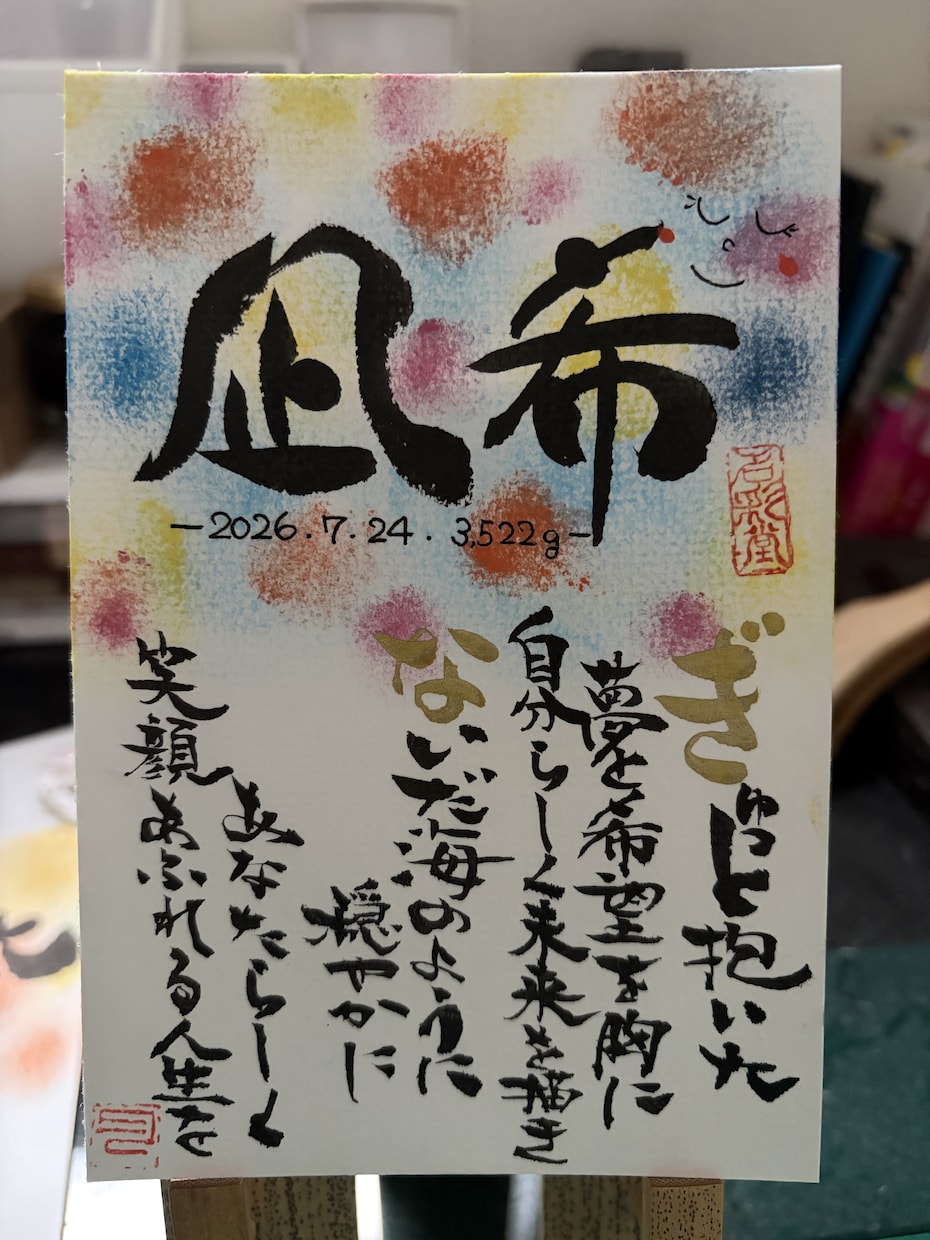 凪希
-2026.7.24. 3,522g-
名彩堂
ぎゅっと抱いた
夢と希望を胸に
自分らしく未来を描き
ないだ海のように
穏やかに
あなたらしく
笑顔あふれる人生を